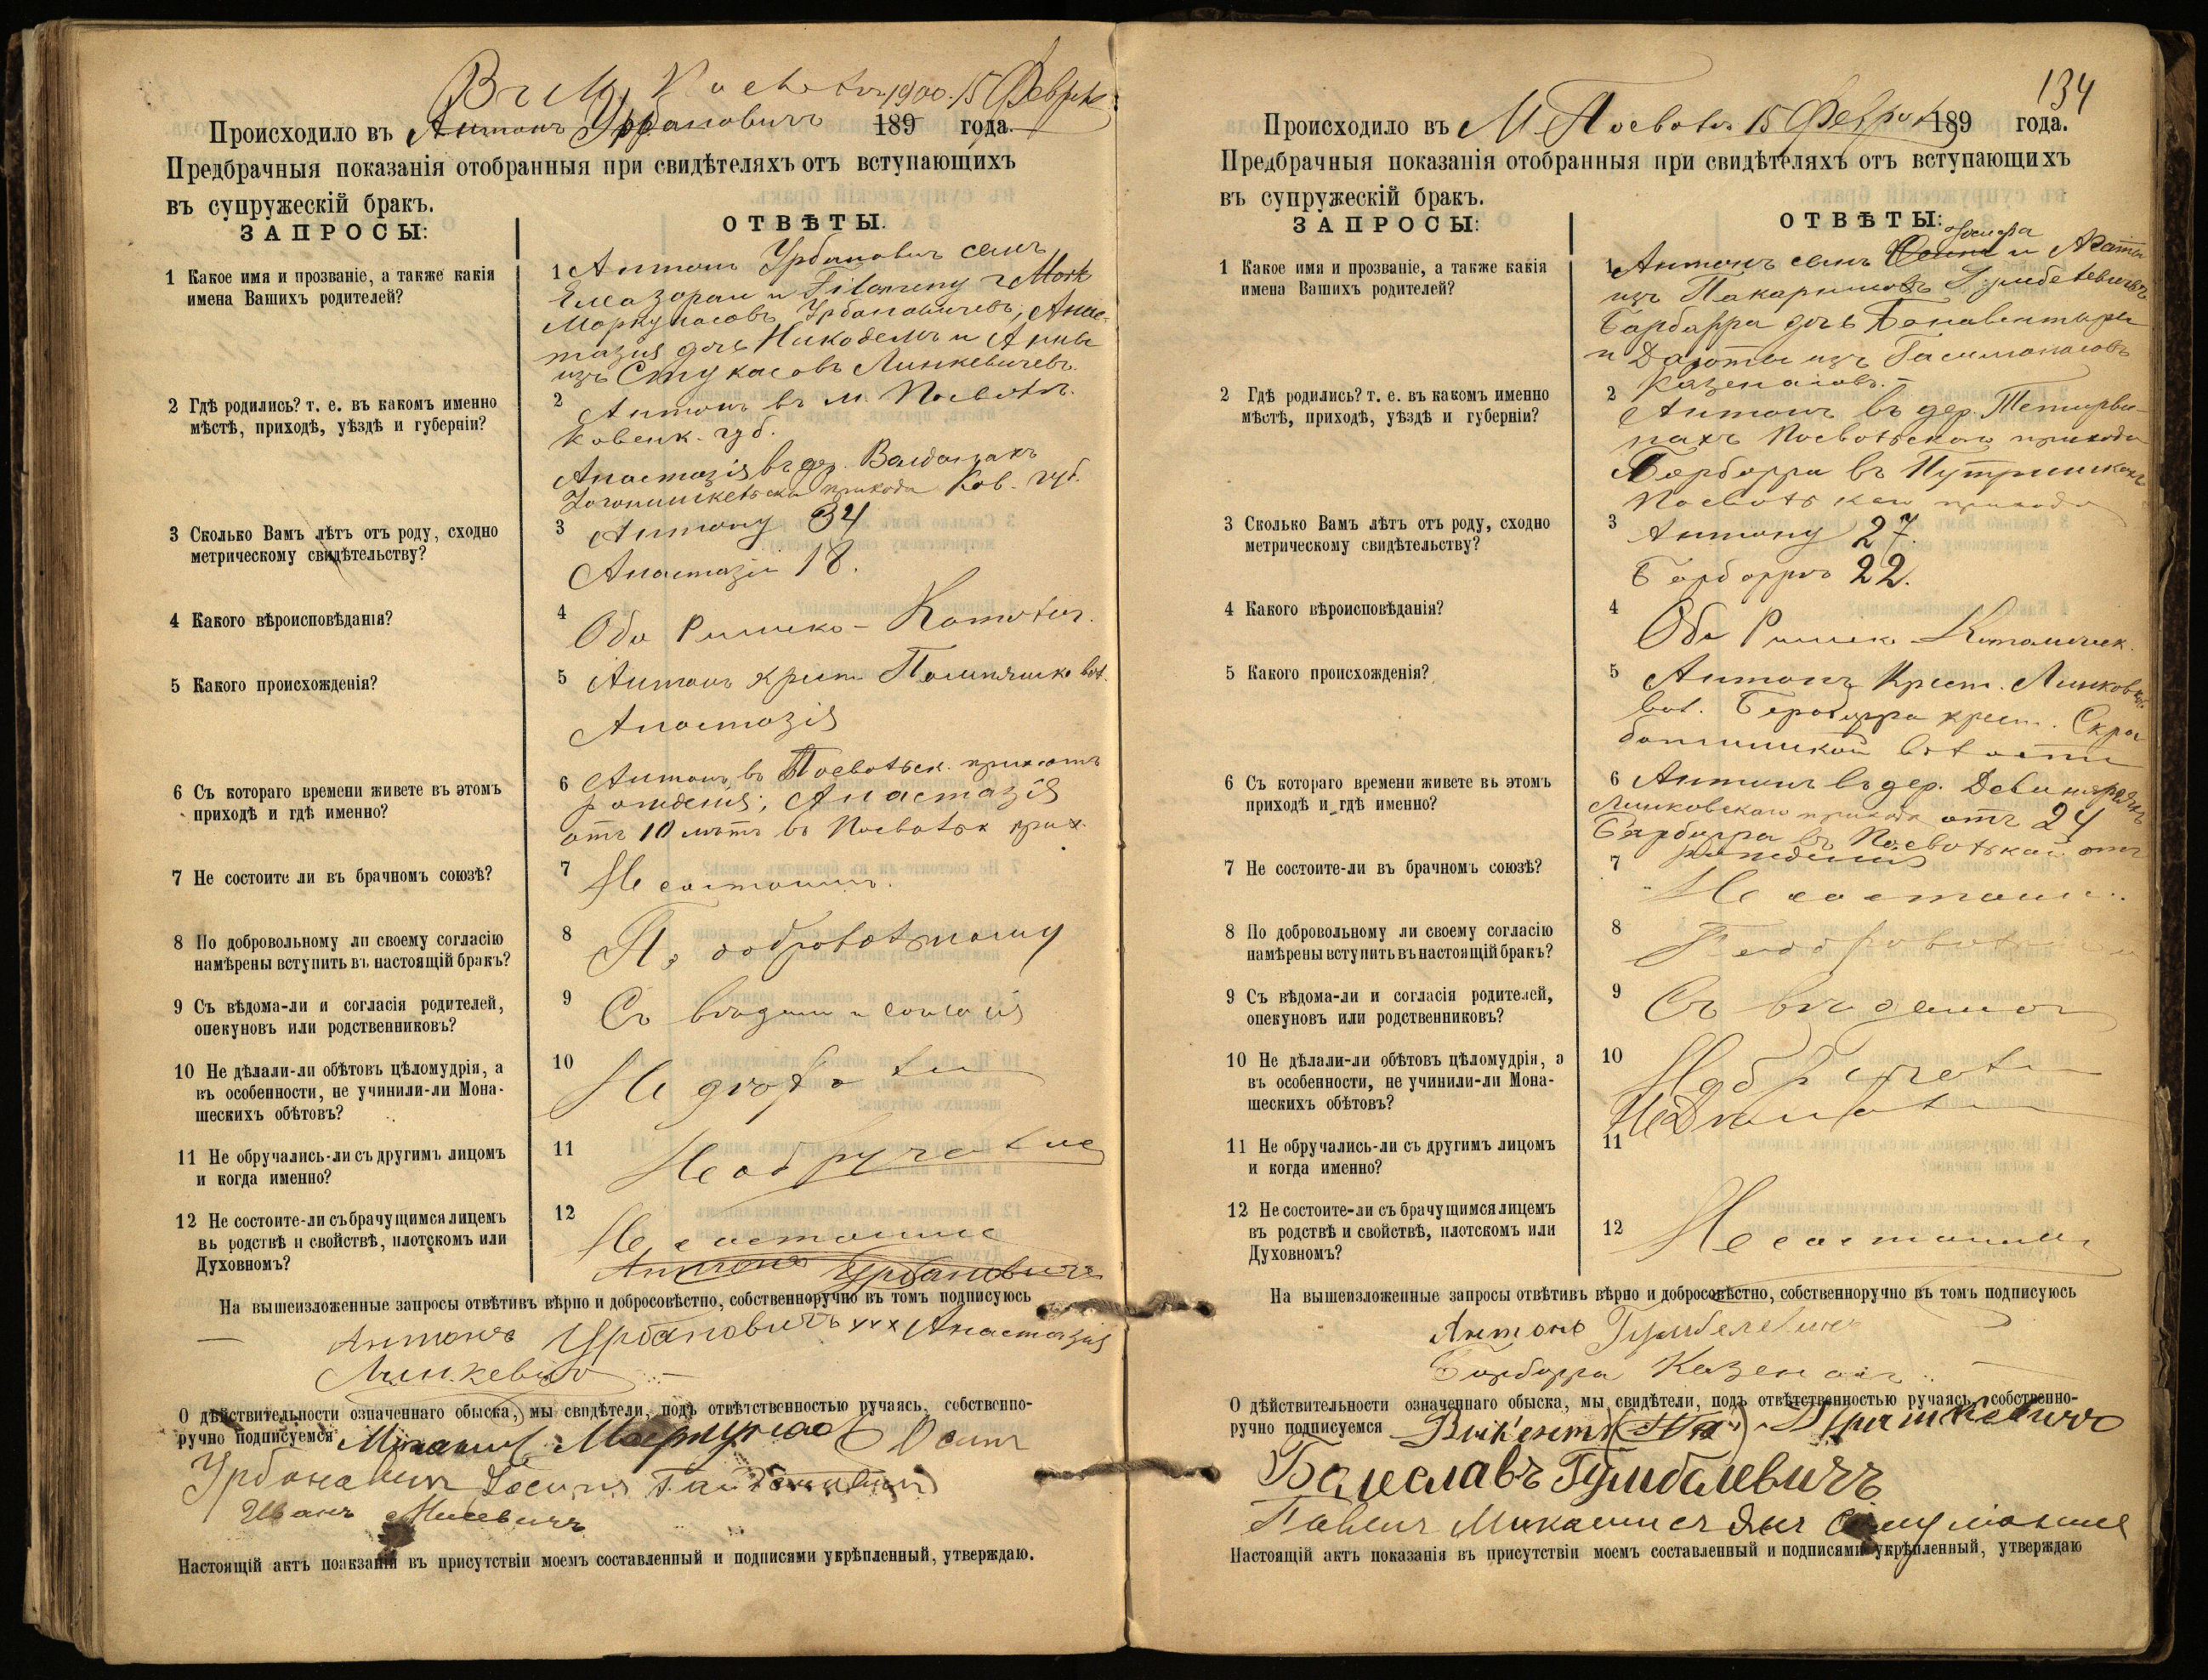 1900. 15 Февр
Происходило въ Антонъ Урбановичъ 189 года.
Предбрачныя показанія отобранныя при свидѣтеляхъ отъ вступающихъ
въ супружескій бракъ.
ЗАПРОСЫ:
ОТВѢТЫ.
1 Какое имя и прозваніе, а также какія
имена Вашихъ родителей?
1 Антонъ Урбановичъ сынъ
Елеазорам и Filomeny
Маркунасовъ Урбановичевъ, Анас-
тазия дочь Никодема и Анны
изъ Стукасовъ Линкевичевъ.
2 Гдѣ родились? т. е. въ какомъ именно
мѣстѣ, приходѣ, уѣздѣ и губерніи?
2 Антонъ въ м. Посволь.
Ковенк. губ.
Анастазія въ дер.
прихода Ков. губ.
3 Сколько Вамъ лѣтъ отъ роду, сходно
метрическому свидѣтельству?
3 Антону 34
Анастазіи 18.
4 Какого вѣроисповѣданія?
4 Оба Римско-Католич.
5 Какого происхожденія?
5 Антонъ крест. вол.
Анастазія
6 Съ котораго времени живете въ этомъ
приходѣ и гдѣ именно?
6 Антонъ въ Посвольск. прих отъ
рожденія; Анастазія
отъ 10 лѣтъ въ Посвольск прих.
7 Не состоите ли въ брачномъ союзѣ?
7 Не состоимъ.
8 По добровольному ли своему согласію
намѣрены вступить въ настоящій бракъ?
8 По добровольному
9 Съ вѣдома-ли и согласія родителей,
опекуновъ или родственниковъ?
9 Съ вѣдома и согласія
10 Не дѣлали-ли обѣтовъ цѣломудрія, а
въ особенности, не учинили-ли Мона-
шескихъ обѣтовъ?
10 Не дѣлали
11 Не обручались-ли съ другимъ лицомъ
и когда именно?
11 Не обручались
12 Не состоите-ли съ брачущимся лицемъ
въ родствѣ и свойствѣ, плотскомъ или
Духовномъ?
12 Не состоимъ
Антонъ Урбановичъ
На вышеизложенные запросы отвѣтивъ вѣрно и добросовѣстно, собственноручно въ томъ подписуюсь
Антонъ Урбановичъ xxx Анастазия
Линкевичъ
О дѣйствительности означеннаго обыска, мы свидѣтели, подъ отвѣтственностью ручаясь, собственно-
ручно подписуемся Маркунас Осипъ
Урбонавичъ Іосипъ
Иванъ Мисевичъ
Настоящій актъ поакзанія въ присутствіи моемъ составленный и подписями укрѣпленный, утверждаю.
134
Происходило въ М Посволь 15 Феврал 189 года.
Предбрачныя показанія отобранныя при свидѣтеляхъ отъ вступающихъ
въ супружескій бракъ.
ЗАПРОСЫ:
ОТВѢТЫ:
1 Какое имя и прозваніе, а также какія
имена Вашихъ родителей?
1 Антонъ сынъ Іосифа и Агаты
изъ Гумбелевичевъ
Барбарра дочь Бонавентуры
и Дароты изъ
2 Гдѣ родились? т. е. въ какомъ именно
мѣстѣ, приходѣ, уѣздѣ и губерніи?
2 Антонъ въ дер.
Посвольскаго прихода
Барбарра въ
Посвольскаго прихода
3 Сколько Вамъ лѣтъ отъ роду, сходно
метрическому свидѣтельству?
3 Антону 27.
Барбаррѣ 22.
4 Какого вѣроисповѣданія?
4 Оба Римско Католическ.
5 Какого происхожденія?
5 Антонъ Крест. Линковск
вол. Барбарра крест. Скра
волости
6 Съ котораго времени живете въ этомъ
приходѣ и гдѣ именно?
6 Антонъ въ дер.
Линковскаго прихода отъ 24
Барбарра въ Посвольскай отъ
рожденія
7 Не состоите-ли въ брачномъ союзѣ?
7 Не состоимъ.
8 По добровольному ли своему согласію
намѣрены вступить въ настоящій бракъ?
8
9 Съ вѣдома-ли и согласія родителей,
опекуновъ или родственниковъ?
9 Съ вѣдома
10 Не дѣлали-ли обѣтовъ цѣломудрія, а
въ особенности, не учинили-ли Мона-
шескихъ обѣтовъ?
10
Не Дѣлали
11 Не обручались-ли съ другимъ лицомъ
и когда именно?
11
12 Не состоите-ли съ брачущимся лицемъ
въ родствѣ и свойствѣ, плотскомъ или
Духовномъ?
12 Не состоимъ
На вышеизложенные запросы отвѣтивъ вѣрно и добросовѣстно, собственноручно въ томъ подписуюсь
Антонъ Гумбелевичъ
Барбарра Казенайте
О дѣйствительности означеннаго обыска, мы свидѣтели, подъ отвѣтственностью ручаясь, собственно-
ручно подписуемся
Болеславъ Гумбалевичъ
Павелъ
Настоящій актъ показанія въ присутствіи моемъ составленный и подписями укрѣпленный, утверждаю